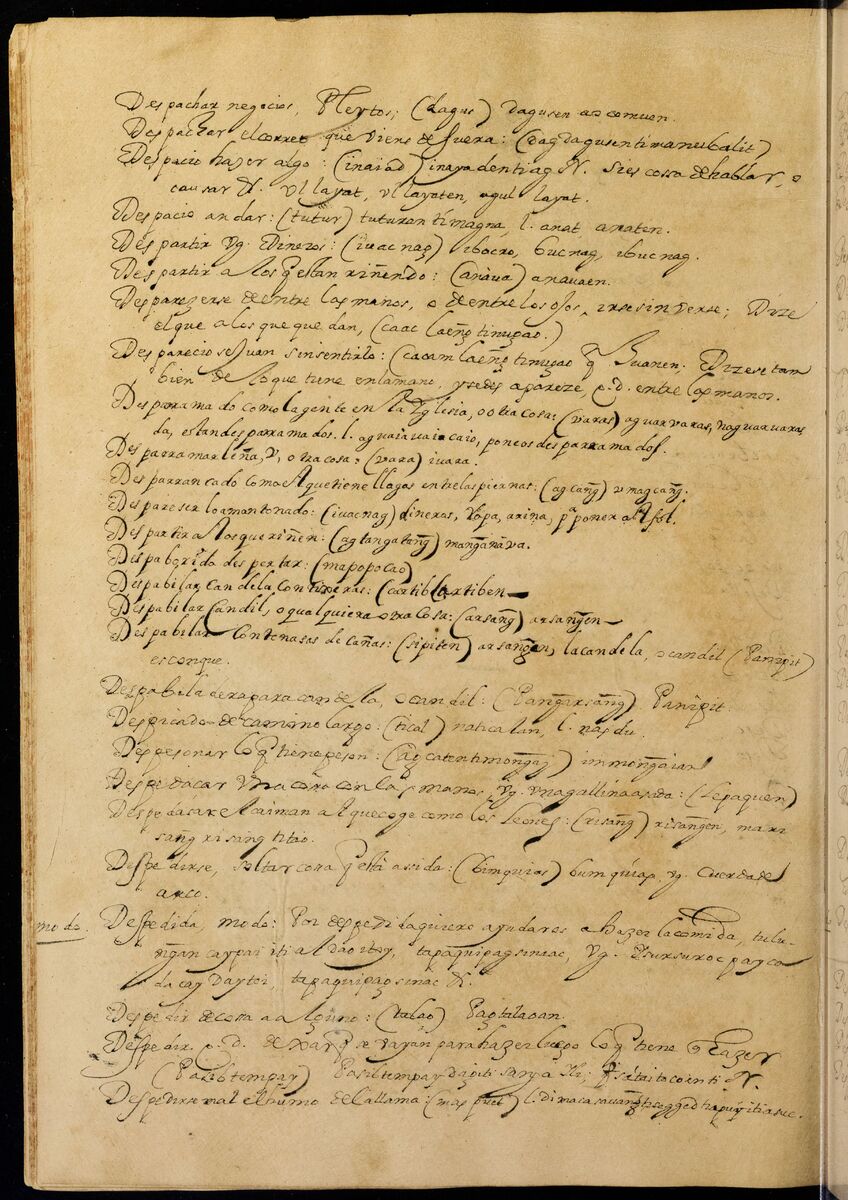 Despachar negocios, Pleytos; (dagus) dagusen a o comuen.
Despachar el corret que viene de fuera: (dagdagusen ti maneubalit)
Despacio hazer algo: (inaiad) inayaden ti ag N. si es cossa de hablar, o
causar N. Ul layat, ul layaten, ugul layat.
Despacio andar: (tutur) tuturan ti magna, l. anat anaten.
Despartir Vg. Dineros: (iuacnag) ibocro, bucnag, ibucnag.
Despartir a los q estan riñendo: (anàua) anauaen.
Desparezerse de entre las manos, o de entre los ojos, irse sin verse; Dize
el que a los que que dan, (caac laeñg tinugao.)
Desparecio se Juan sin sentirlo: (caCam laeñg tinugao q Juanen. Dizese tam
bien de lo que tiene en la mano, y se des apareze, q. d. entre las manos.
Desparramado como la gente en la Yglesia, o otra cosa: (varas) aguarvaras, naguarvaras
da, estan desparramados. l. aguaiauaicaio, poneos desparramados.
Desparramar leña, V, o tra cosa: (vara) iuara.
Desparrancado como el que tiene llagas entre las piernas: (agcañg) v magcañg.
Despareser lo amontonado: (iuacnag) dineros, ropa, arina, pª poner al sol.
Despartir a los que riñen: (agtangatañg) mañganàva.
Despaborido despertar: (mapopocao)
Despabilar, candela con tixeras: (cartib) cartiben
Despabilar Candil, o qualquiera otra cosa: (arsañg) arsañgen
Despabilar con tenasas de cañas: (sipiten) arsañgen, la candela, o candil (Panipit)
es con que.
Despabiladera para candela, o candil: (Pañgarsañg). Panipit.
Despicado de camino largo: (tical) naticalan, l. nasdu.
Despesonar lo q tiene peson: (Ag caten ti moñgaiy) im moñgaian
Despedacar una cosa con las manos, Vg. una gallina asada: (Lepaquen)
Despedasar el caiman al que coge como los leones: (risañg) risañgen, ma ri
sañg ri sang titao.
Despedirse, soltar cosa q está asida: (Bimquias) bumquias, vg. Cuerda de
arco.
mo do. Despedida, modo: Por despedida quiero ayudaros a hazer la comida, tulu-
ñgan caypai iti aldaoitoy, tapaquipagsinac, Vg. Isursuroc payca
da cay Daytoi, tapaquipagsinac N.
Despedir de casa a alguno: (talao) Pagtalaoan.
Despedir q. D. dexar q se vayan para hazer luego lo q tiene q hazer
(Pasibtempay) Pasibtempay dagiti sarya Ili; N.
Despedirse mal el humo de la llama: (mas puet) l. dimaca sauañg